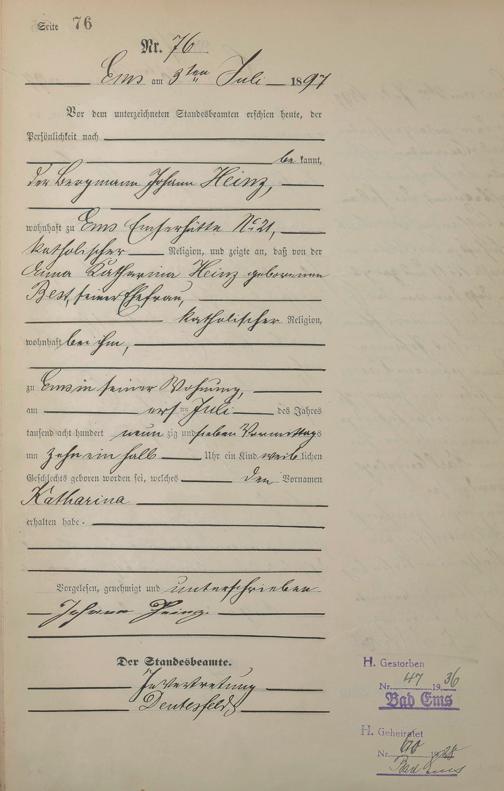 Seite 76
Nr. 76
Ems am 3ten Juli 1897
Vor dem unterzeichneten Standesbeamten erschien heute, der
Persönlichkeit nach
be kannt,
der Bergmann Johann Heinz,
wohnhaft zu Ems Emserhütte No 21,
katholischer Religion, und zeigte an, daß von der
Anna Katharina Heinz geborenen
Best, seiner Ehefrau,
katholischer Religion,
wohnhaft bei ihm,
zu Ems in seiner Wohnung,
am ersten Juli des Jahres
tausend acht hundert neun zig und sieben Vormittags
um zehn ein halb Uhr ein Kind weib lichen
Geschlechts geboren worden sei, welches den Vornamen
Katharina
erhalten habe.
Vorgelesen, genehmigt und unterschrieben
Johann Heinz
Der Standesbeamte.
In Vertretung
H. Gestorben
Nr. 47 1936
Bad Ems
H. Geheiratet
Nr. 60 19
Bad Ems